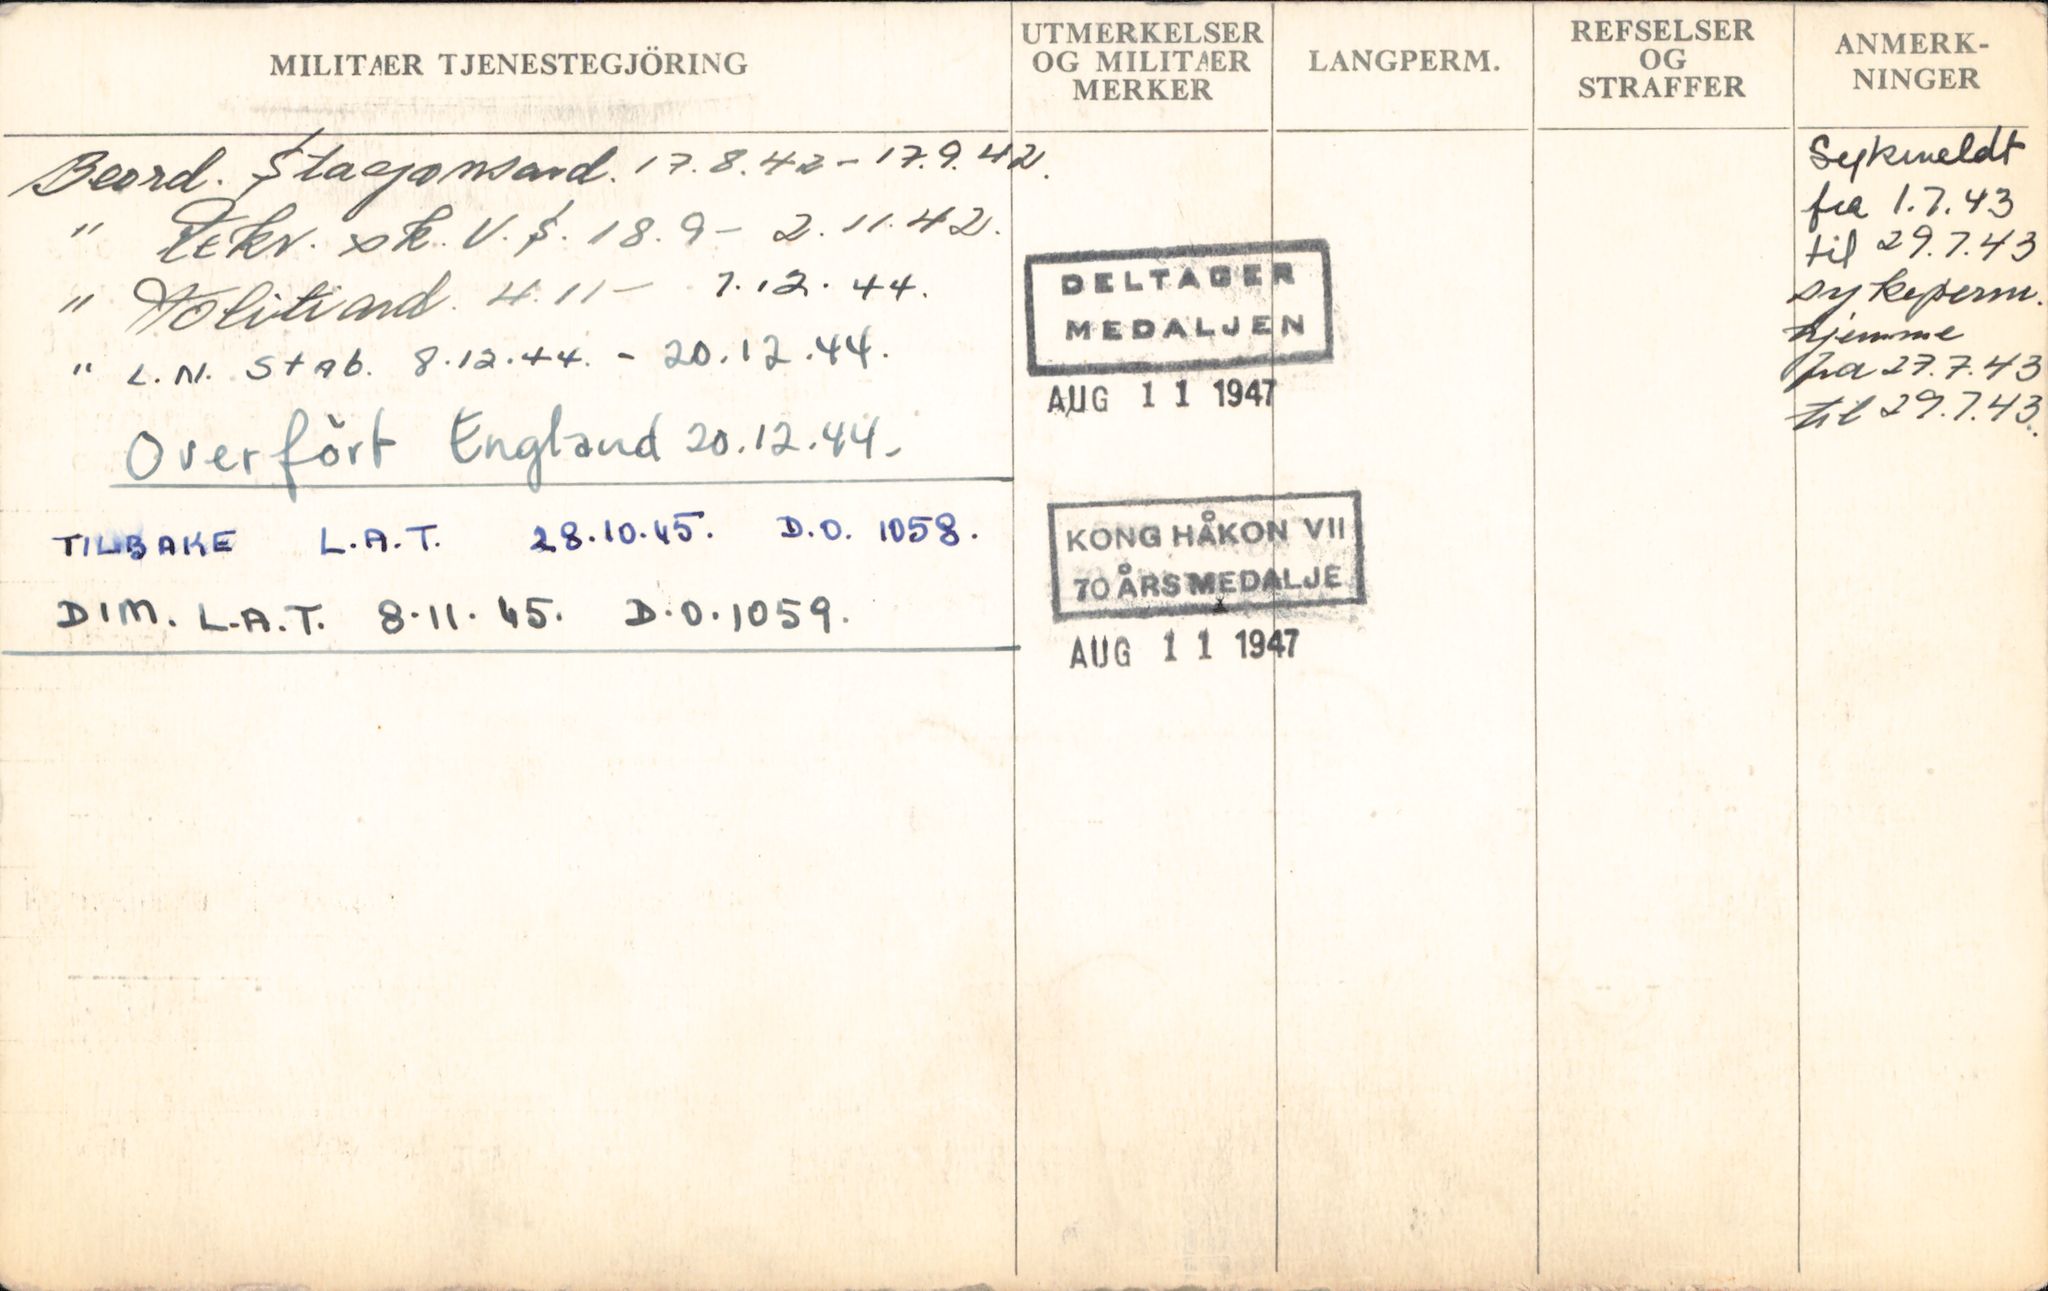 MILITÆR TJENESTEGJÖRING
UTMERKELSER
OG MILITÆR
MERKER
LANGPERM.
REFSELSER
OG
STRAFFER
ANMERK-
NINGER
Beord. 17.8.42 - 17.9.42.
" Rekr. sk. V.S. 18.9 - 2.11.42.
" 4.11 - 7.12.44.
" L.N. Stab. 8.12.44. - 20.12.44.
Overført England 20.12.44.
TILBAKE L.A.T. 28.10.45. D.O. 1058.
DIM. L.A.T. 8.11.45. D.O. 1059.
DELTAGER
MEDALJEN
AUG 11 1947
KONG HÅKON VII
70 ÅRS MEDALJE
AUG 11 1947
Sykmeldt
fra 1.7.43
til 29.7.43
sykeperm.
hjemme
fra 27.7.43
til 29.7.43.